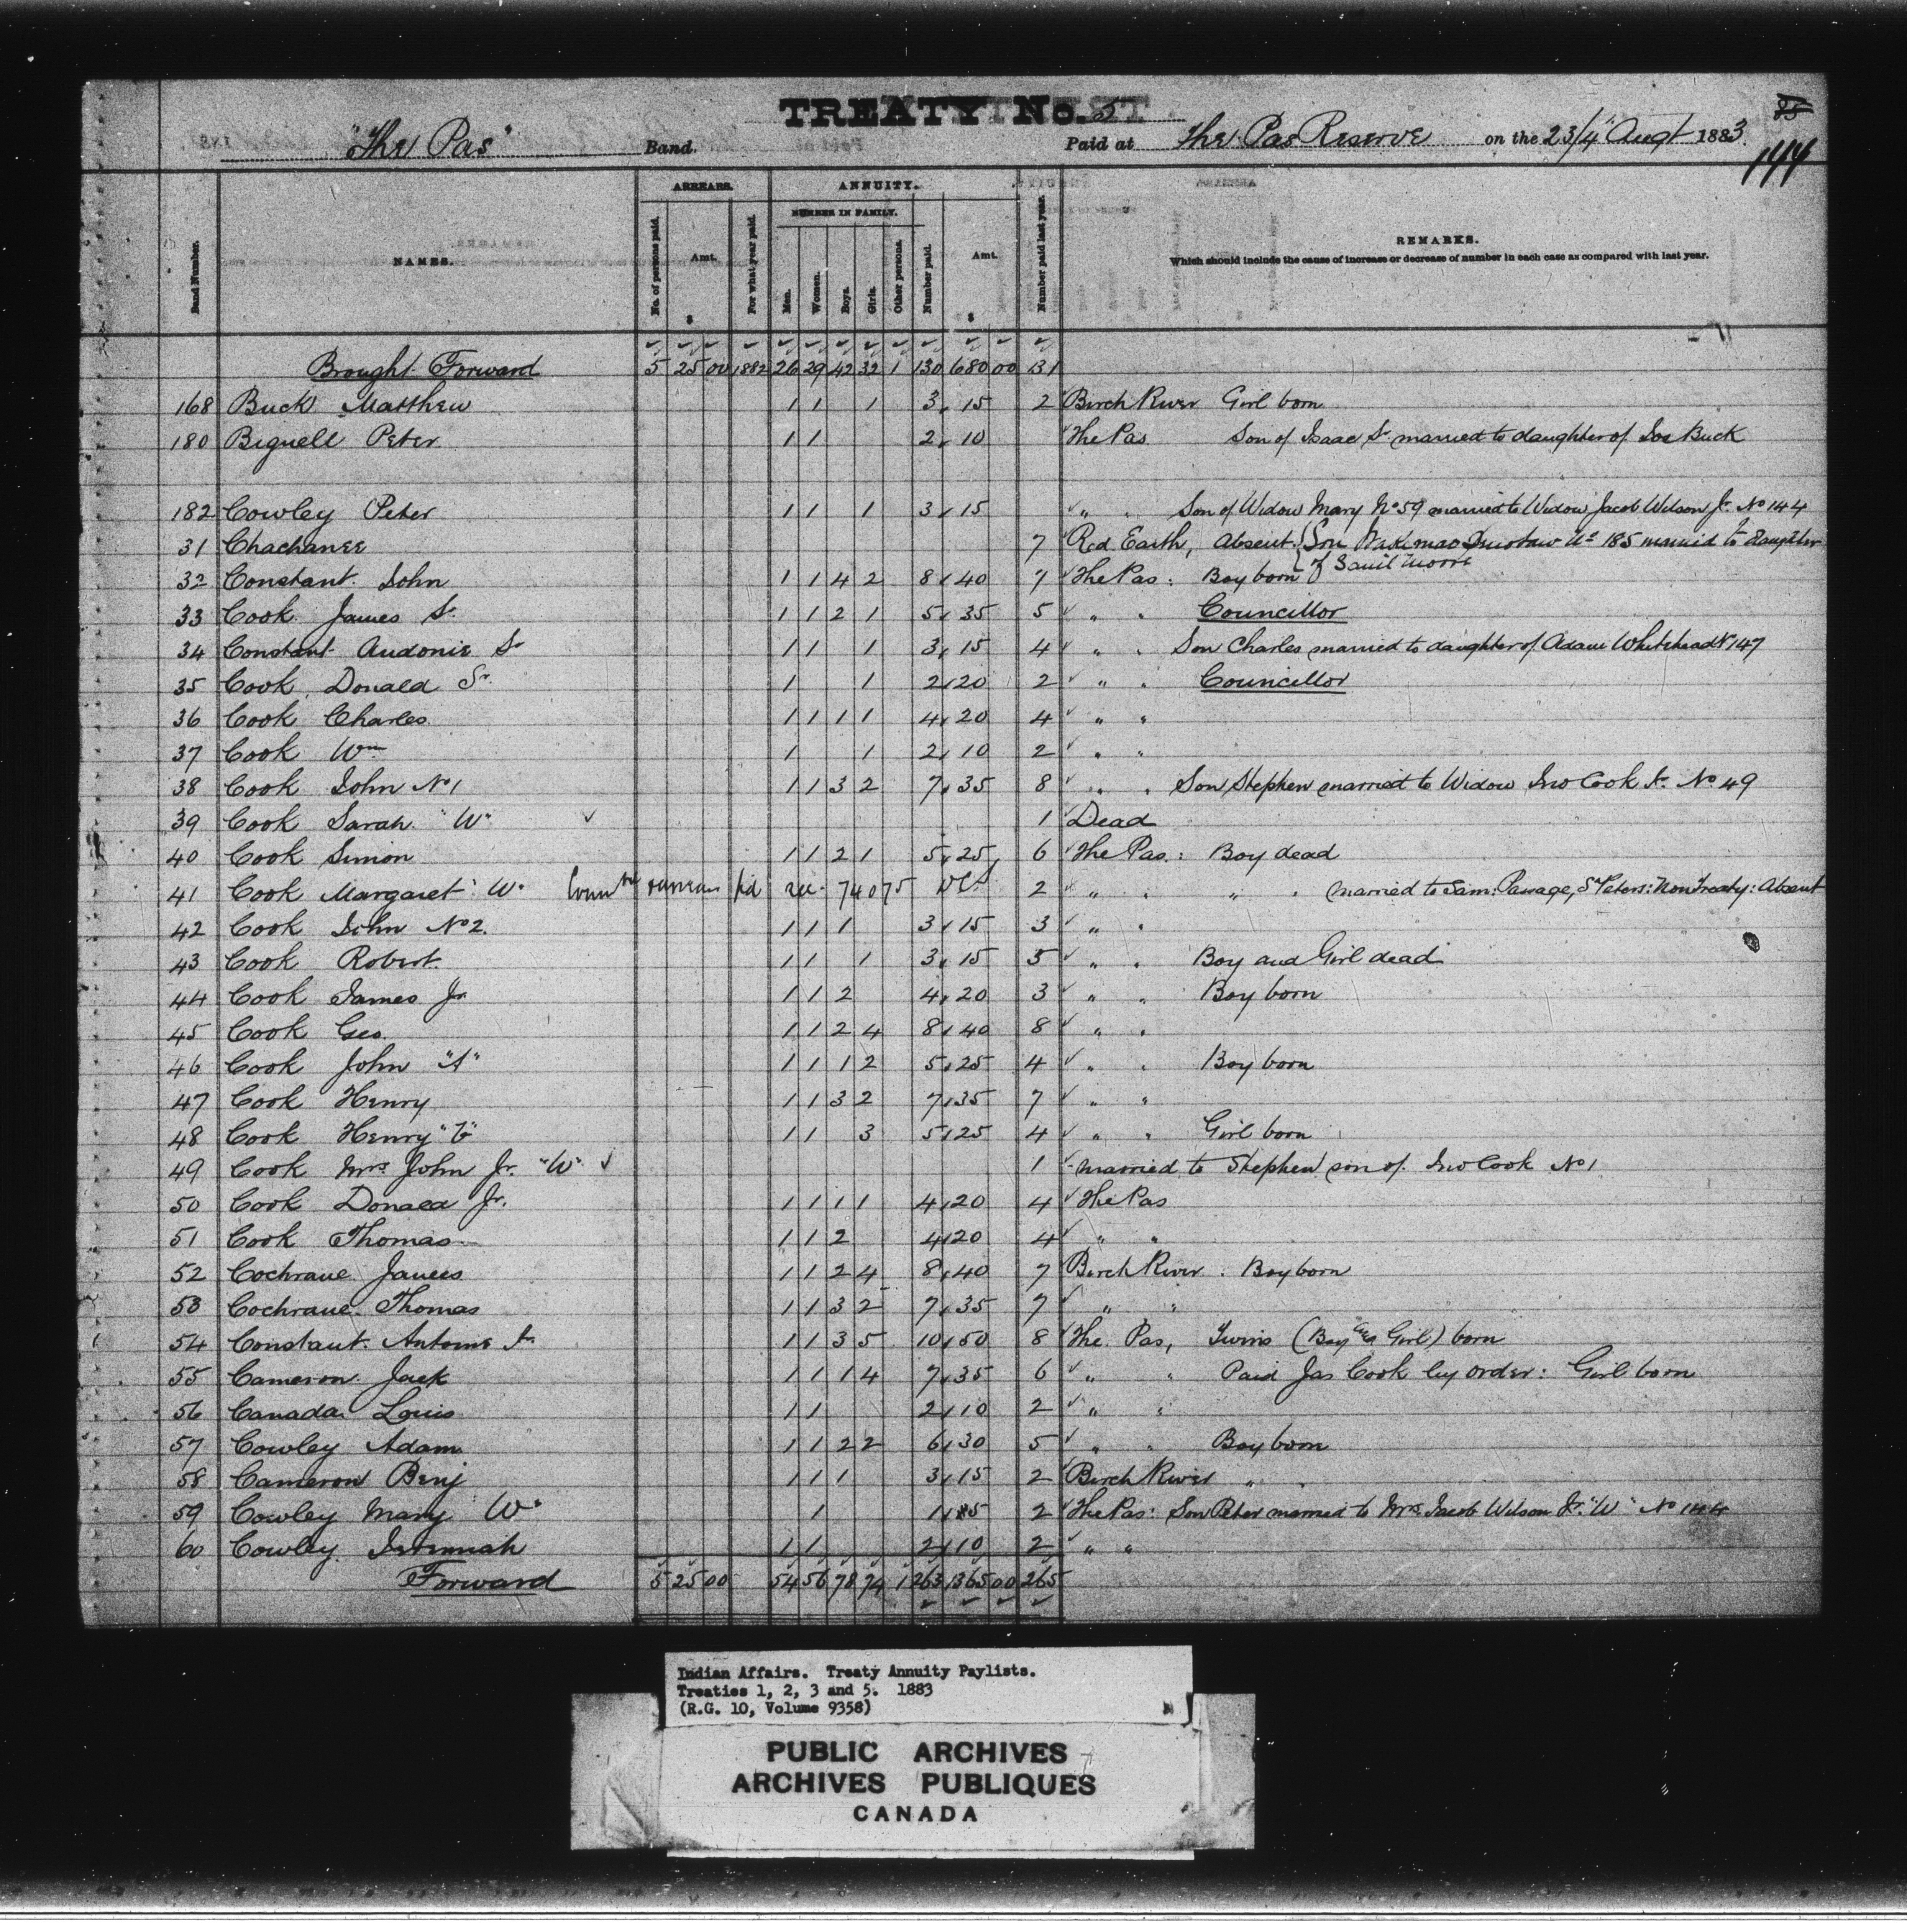 TREATY No. 5
85
"The Pas" Band. Paid at The Pas Reserve on the 23/4 Augt 1883.
144
Band Number. NAMES. ARREARS. No. of persons paid. Amt. $ For what year paid. ANNUITY. NUMBER IN FAMILY. Men. Women. Boys. Girls. Other persons. Number paid. Amt. $ Number paid last year. REMARKS.
Which should include the cause of increase or decrease of number in each case as compared with last year.
Brought Forward 5 25 00 1882 26 29 42 32 1 130 680 00 131
168 Buck Matthew 1 1 1 3 15 2 Birch River Girl born
180 Bignell Peter 1 1 2 10 The Pas Son of Isaac Sr married to daughter of Joe Buck
182 Cowley Peter 1 1 1 3 15 " " Son of Widow Mary No 59 married to Widow Jacob Wilson Jr No 144
31 Chachanee 7 Red Earth, Absent. Son No 185 married to daughter
of Saml Moore
32 Constant John 1 1 4 2 8 40 7 The Pas: Boy born
33 Cook James Sr 1 1 2 1 5 35 5 " " Councillor
34 Constant Audonie Sr 1 1 1 3 15 4 " " Son Charles married to daughter of Adam Whitehead No 147
35 Cook Donald Sr. 1 1 2 20 2 " " Councillor
36 Cook Charles 1 1 1 1 4 20 4 " "
37 Cook Wm 1 1 2 10 2 " "
38 Cook John No 1 1 1 3 2 7 35 8 " " Son Stephen married to Widow Jno Cook Jr No 49
39 Cook Sarah "W" ✓ 1 Dead
40 Cook Simon 1 1 2 1 5 25 6 The Pas: Boy dead
41 Cook Margaret "W" 2 " " " " married to Sam: Passage, St Peters: Non Treaty: Absent
42 Cook John No 2. 1 1 1 3 15 3 " "
43 Cook Robert 1 1 1 3 15 5 " " Boy and Girl dead
44 Cook James Jr 1 1 2 4 20 3 " " Boy born
45 Cook Geo. 1 1 2 4 8 40 8 " "
46 Cook John "A" 1 1 1 2 5 25 4 " " Boy born
47 Cook Henry 1 1 3 2 7 35 7 " "
48 Cook Henry "B" 1 1 3 5 25 4 " " Girl born
49 Cook Mrs John Jr. "W" ✓ 1 married to Stephen son of Jno Cook No 1
50 Cook Donald Jr. 1 1 1 1 4 20 4 The Pas
51 Cook Thomas 1 1 2 4 20 4 " "
52 Cochrane James 1 1 2 4 8 40 7 Birch River. Boy born
53 Cochrane Thomas 1 1 3 2 7 35 7 " "
54 Constant Antoine Jr 1 1 3 5 10 50 8 The Pas, Twins (Boy and Girl) born
55 Cameron Jack 1 1 1 4 7 35 6 " " Paid Jas Cook by order: Girl born
56 Canada Louis 1 1 2 10 2 " "
57 Cowley Adam 1 1 2 2 6 30 5 " " Boy born
58 Cameron Benj 1 1 1 3 15 2 Birch River "
59 Cowley Mary "W" 1 1 5 2 The Pas: Son Peter married to Mrs Jacob Wilson Jr. "W" No 144
60 Cowley Jeremiah 1 1 2 10 2 " "
Forward 5 25 00 54 56 78 74 1 263 1365 00 265
Indian Affairs. Treaty Annuity Paylists.
Treaties 1, 2, 3 and 5. 1883
(R.G. 10, Volume 9358)
PUBLIC ARCHIVES
ARCHIVES PUBLIQUES
CANADA